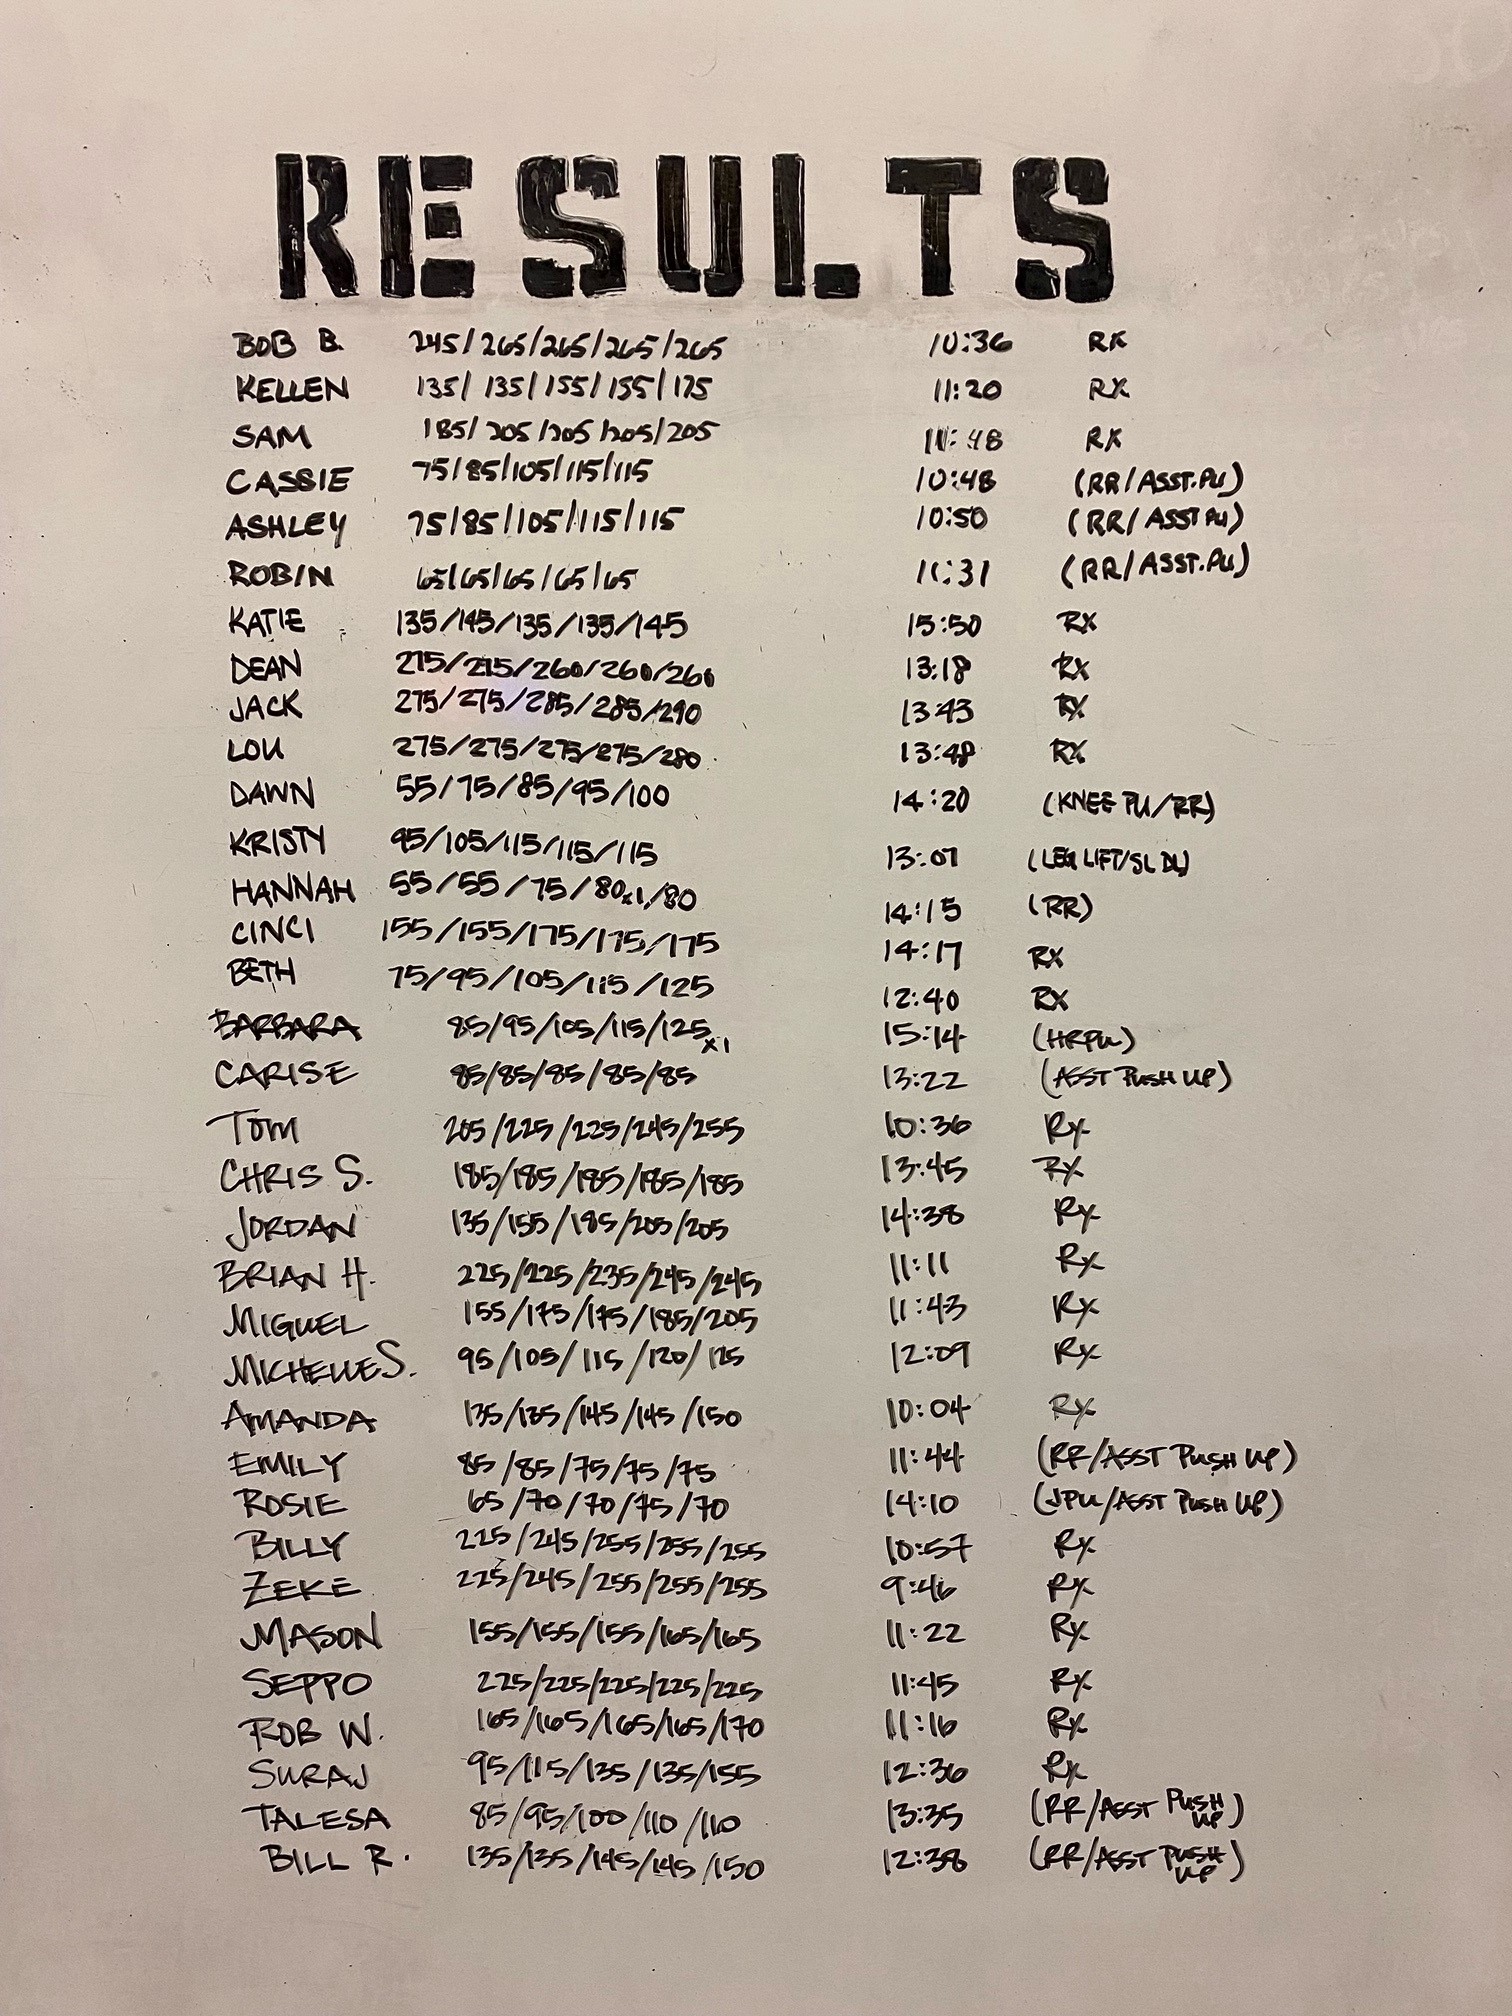 RESULTS
BOB B. 245/265/265/265/265 10:36 RX
KELLEN 135/135/155/155/175 11:20 RX
SAM 185/205/205/205/205 11:48 RX
CASSIE 75/85/105/115/115 10:48 (RR/ASST.PU)
ASHLEY 75/85/105/115/115 10:50 (RR/ASST PU)
ROBIN 65/65/65/65/65 11:31 (RR/ASST.PU)
KATIE 135/145/135/135/145 15:50 RX
DEAN 275/275/260/260/260 13:18 RX
JACK 275/275/285/285/290 13:43 RX
LOU 275/275/275/275/280 13:48 RX
DAWN 55/75/85/95/100 14:20 (KNEE PU/RR)
KRISTY 95/105/115/115/115 13:07 (LEG LIFT/SL DL)
HANNAH 55/55/75/80x1/80 14:15 (RR)
CINCI 155/155/175/175/175 14:17 RX
BETH 75/95/105/115/125 12:40 RX
BARBARA 85/95/105/115/125 x1 15:14 (HRPU)
CARISE 85/85/85/85/85 13:22 (ASST PUSH UP)
TOM 205/225/225/245/255 10:36 RX
CHRIS S. 185/185/185/185/185 13:45 RX
JORDAN 135/155/185/205/205 14:38 RX
BRIAN H. 225/225/235/245/245 11:11 RX
MIGUEL 155/175/175/185/205 11:43 RX
MICHELLE S. 95/105/115/120/125 12:09 RX
AMANDA 135/135/145/145/150 10:04 RX
EMILY 85/85/75/75/75 11:44 (RR/ASST PUSH UP)
ROSIE 65/70/70/75/70 14:10 (JPU/ASST PUSH UP)
BILLY 225/245/255/255/255 10:57 RX
ZEKE 225/245/255/255/255 9:46 RX
MASON 155/155/155/165/165 11:22 RX
SEPPO 225/225/225/225/225 11:45 RX
ROB W. 165/165/165/165/170 11:16 RX
SURAJ 95/115/135/135/155 12:36 RX
TALESA 85/95/100/110/110 13:35 (RR/ASST PUSH UP)
BILL R. 135/135/145/145/150 12:38 (RR/ASST PUSH UP)